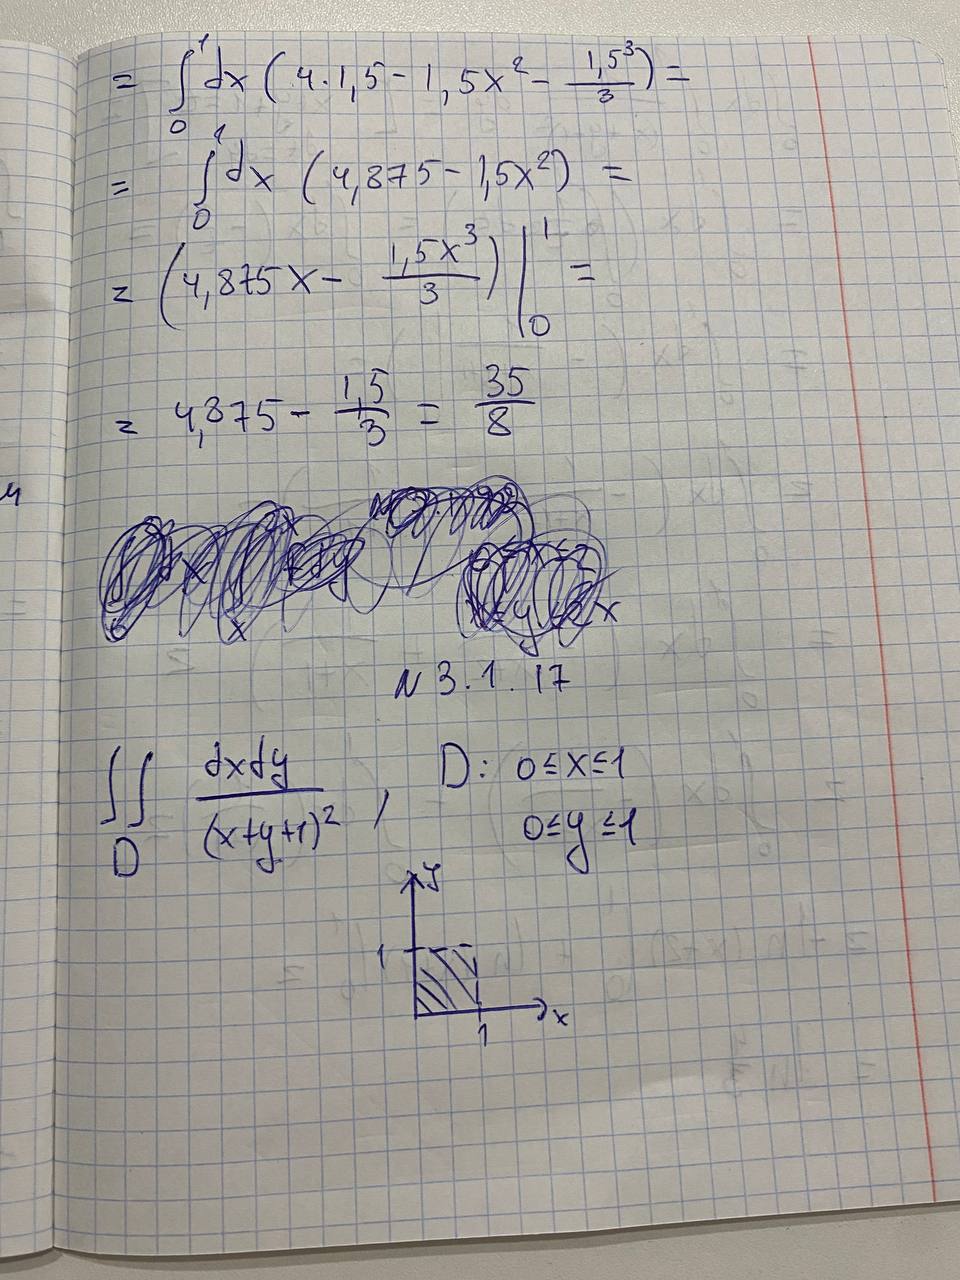 = ∫₀¹ dx (4·1,5 - 1,5x² - 1,5³/3) =
= ∫₀¹ dx (4,875 - 1,5x²) =
= (4,875x - 1,5x³/3) |₀¹ =
= 4,875 - 1,5/3 = 35/8
N 3.1.17
∬_D dxdy/(x+y+1)², D: 0≤x≤1
0≤y≤1
y
1
x
1